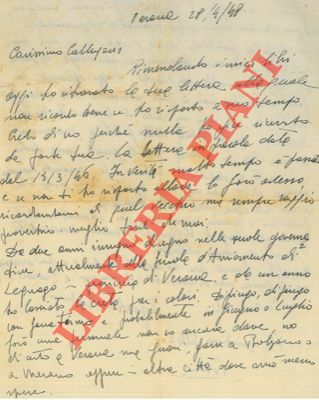 Verona 28/4/48
Carissimo Callegaris
Rimandando i miei libri
oggi ho ritrovato la tua lettera alla quale
non ricordo bene se ho risposto a suo tempo.
Credo di no perché nulla ho più ricevuto
da parte tua. La lettera in parola data
dal 13/3/46. In verità molto tempo è passato
e se non ti ho risposto allora lo farò adesso,
ricordandomi di quel vecchio ma sempre saggio
proverbio meglio tardi che mai.
Da due anni insegno disegno nelle scuole governa
tive, attualmente alla Scuola d'Avviamento di
Legnago provincia di Verona. e da un anno
ho lasciato la creta per i colori. Dipingo, dipingo
con probabilmente in Giugno o Luglio
farò una personale non so ancora dove, no
di certo a Verona ma fuori. forse a Bolzano o
a Merano oppure in altra città dove avrò meno
spese.
LIBRERIA PIANI